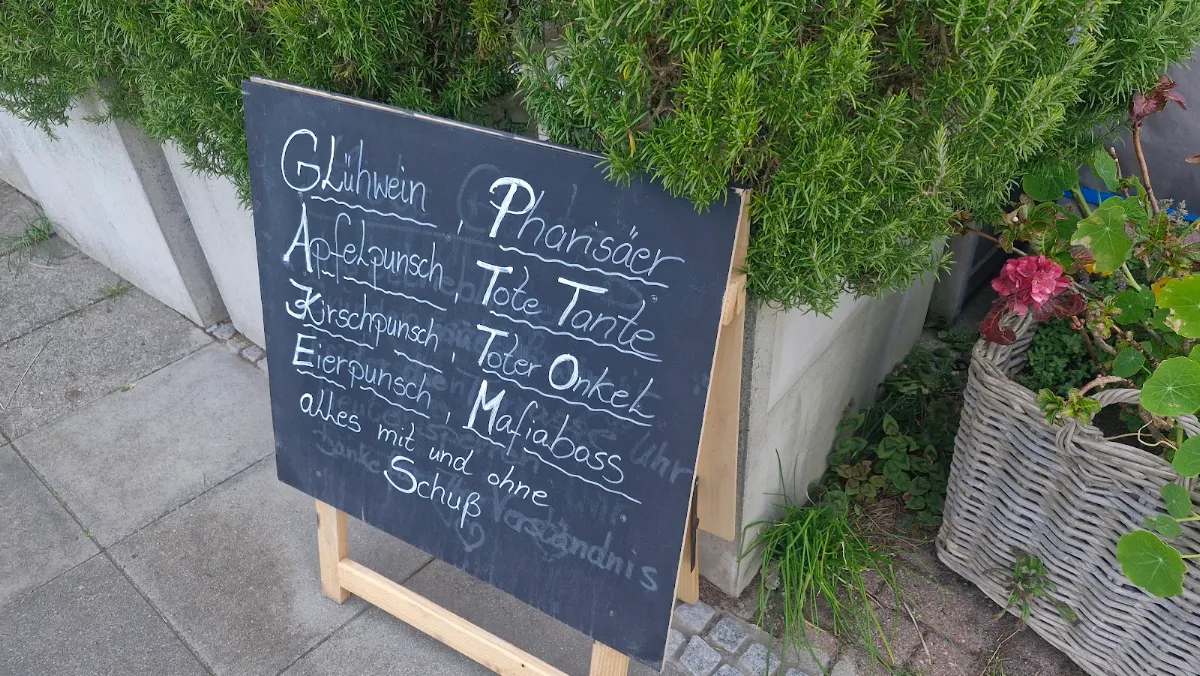 Glühwein, Pharisäer
Apfelpunsch, Tote Tante
Kirschpunsch, Toter Onkel
Eierpunsch, Mafiaboss
alles mit und ohne
Schuß
Uhr
Danke
Verständnis